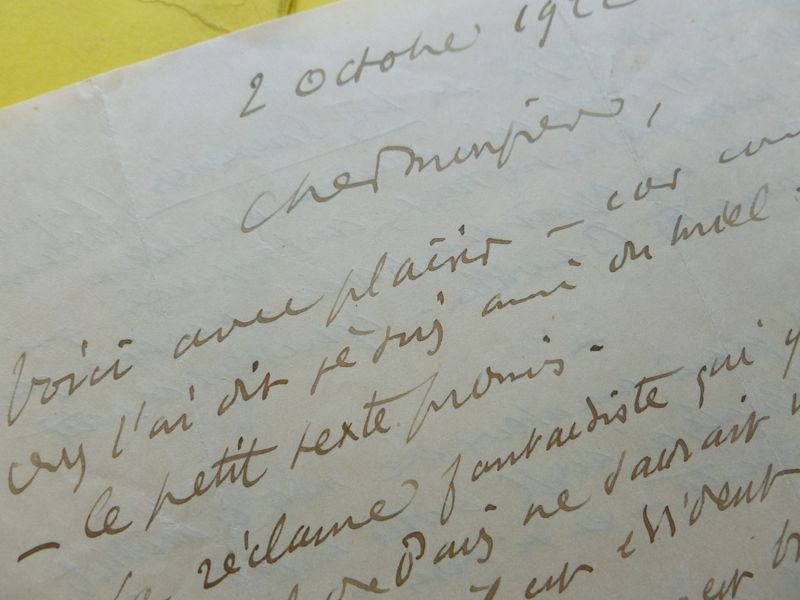 2 Octobre 192
Cher Monsieur,
Voici avec plaisir – car
l'ai dit je suis ami du miel -
– le petit texte promis -
La réclame fantaisiste qui y
de Paris ne saurait
il est évident
est